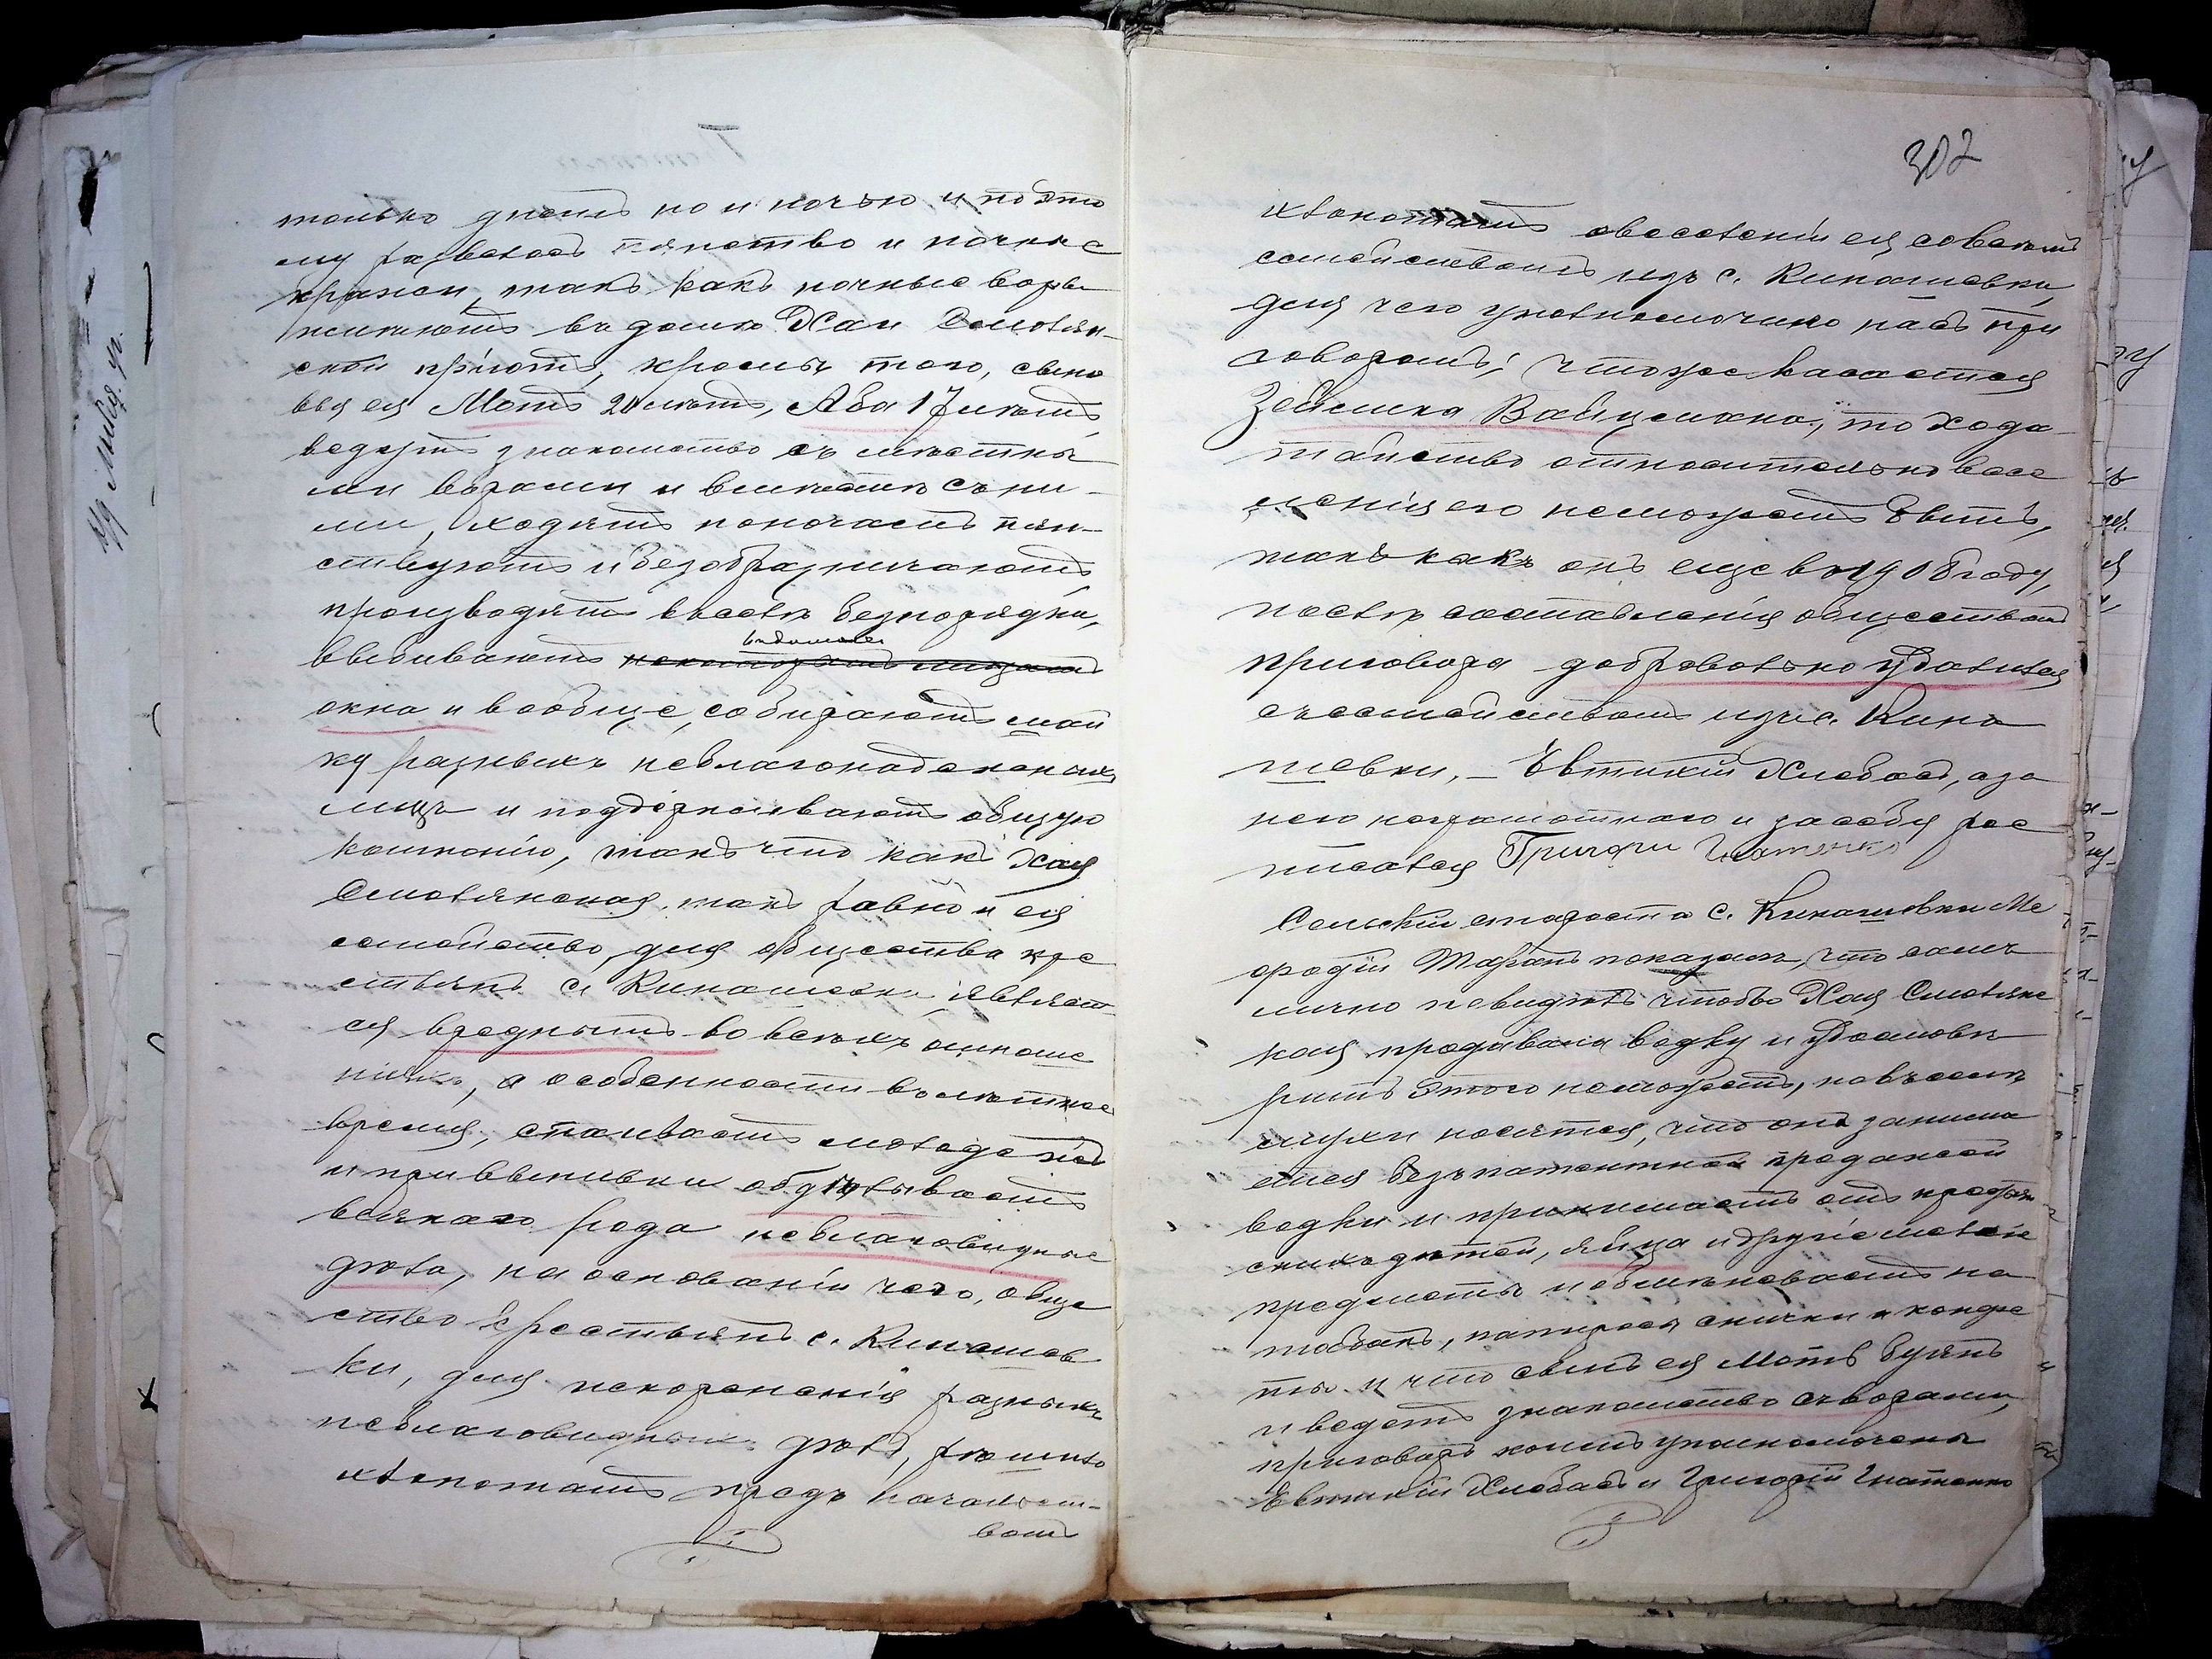 только днемъ но и ночью и поэто
му развелось пянство и ночные
кражи, такъ какъ ночные воры
имеютъ въ доме Хаи Смолян-
ской приютъ, кроме того, сыно
вья ея Мотъ 20 летъ, Аба 17 летъ,
ведутъ знакомство съ местны
ми ворами и вместе съ ни-
ми, ходятъ по ночамъ пян-
ствуютъ и безобразничаютъ,
производятъ въ селе безпорядки,
выбиваютъ
окна и вообще, собираютъ шай
ку разныхъ неблагонадежныхъ
лицъ и поддерживаютъ общую
компанію, такъ что какъ Хая
Смолянская, такъ равно и ея
семейство, для общества кре
стьянъ с. Кинашевки, является
ся вреднымъ во всехъ отноше
ніяхъ, а особенности въ летнее
время, спаиваетъ молодежь
и при выпивки обделываетъ
всякаго рода неблаговидные
дела, на основаніи чего, обще
ство крестьянъ с. Кинашев
ки, для искорененія разныхъ
неблаговидныхъ делъ, решило
хлопотать предъ начальст-
вомъ
302
хлопотать овыселеніи ея со всемъ
семействомъ изъ с. Кинашевки,
для чего уполномочило насъ при
говоромъ; что же касается
Зейлика Вайцмана, то хода
тайство относительно высе
ленія его неможетъ быть,
такъ какъ онъ еще въ 1908 году,
после составленія обществомъ
приговора добровольно удалился
съ семействомъ изъ с. Кина
шевки, – Евтихій Хлебасъ, а за
него неграмотнаго и за себя рос
писался Григори Игнатенко
Сельскій староста с. Кинашевки Ме
фодій Таранъ показалъ, что самъ
лично невиделъ чтобы Хая Смолянс
кая продавала водку и удостове
рить этого неможетъ, но въ селе
слухи носятся, что она занима
ется безъпатентной продажей
водки и принимаетъ отъ крестьян
скихъ детей, яйца и другіе мелкіе
предметы и обмениваетъ на
табакъ, папиросы спички и конфе
ты и что сынъ ея Мотъ буянъ
и ведетъ знакомство съ ворами,
приговоръ коимъ уполномочены
Евтихій Хлебасъ и Григорій Игнатенко